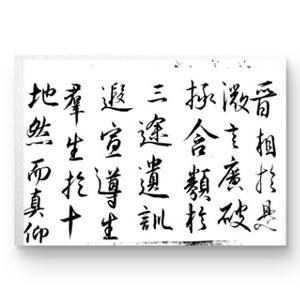 晉相於是
微言廣破
拯含類於
三途遺訓
遐宣導生
羣生於十
地然而真仰